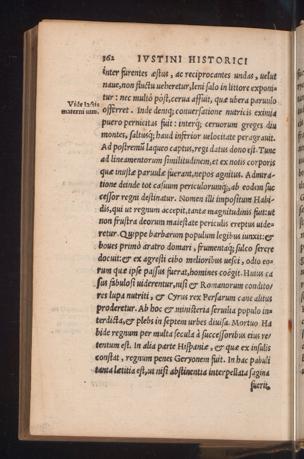 362 IVSTINI HISTORICI
inter furentes æstus, ac reciprocantes undas, uelut
naue, non fluctu ueheretur, leni salo in littore exponi
tur: nec multò pòst, cerua affuit, quæ ubera paruulo
Vide lactis
offerret. Inde deniq; conuersatione nutricis eximia
materni uim.
puero pernicitas fuit: interq; ceruorum greges diu
montes, saltusq; haud inferior uelocitate peragrauit.
Ad postremũ laqueo captus, regi datus dono est. Tunc
ad lineamentorum similitudinem, et ex notis corporis
quæ inustæ paruulæ fuerant, nepos agnitus. Admira-
tione deinde tot casuum periculorumq;, ab eodem suc
cessor regni destinatur. Nomen illi impositum Habi-
dis, qui ut regnum accepit, tantæ magnitudinis fuit: ut
non frustra deorum maiestate periculis ereptus uide-
retur. Quippe barbarum populum legibus iunxit: &
boues primo aratro domari, frumentaq; sulco serere
docuit: & ex agresti cibo melioribus uesci, odio eo-
rum quæ ipse passus fuerat, homines coëgit. Huius ca
sus fabulosi uiderentur, nisi & Romanorum condito-
res lupa nutriti, & Cyrus rex Persarum cane alitus
proderetur. Ab hoc & ministeria seruilia populo in-
terdicta, & plebs in septem urbes diuisa. Mortuo Ha
bide regnum per multa secula à successoribus eius re-
tentum est. In alia parte Hispaniæ, & quæ ex insulis
constat, regnum penes Geryonem fuit. In hac pabuli
tanta lætitia est, ut nisi abstinentia interpellata sagina
fuerit,